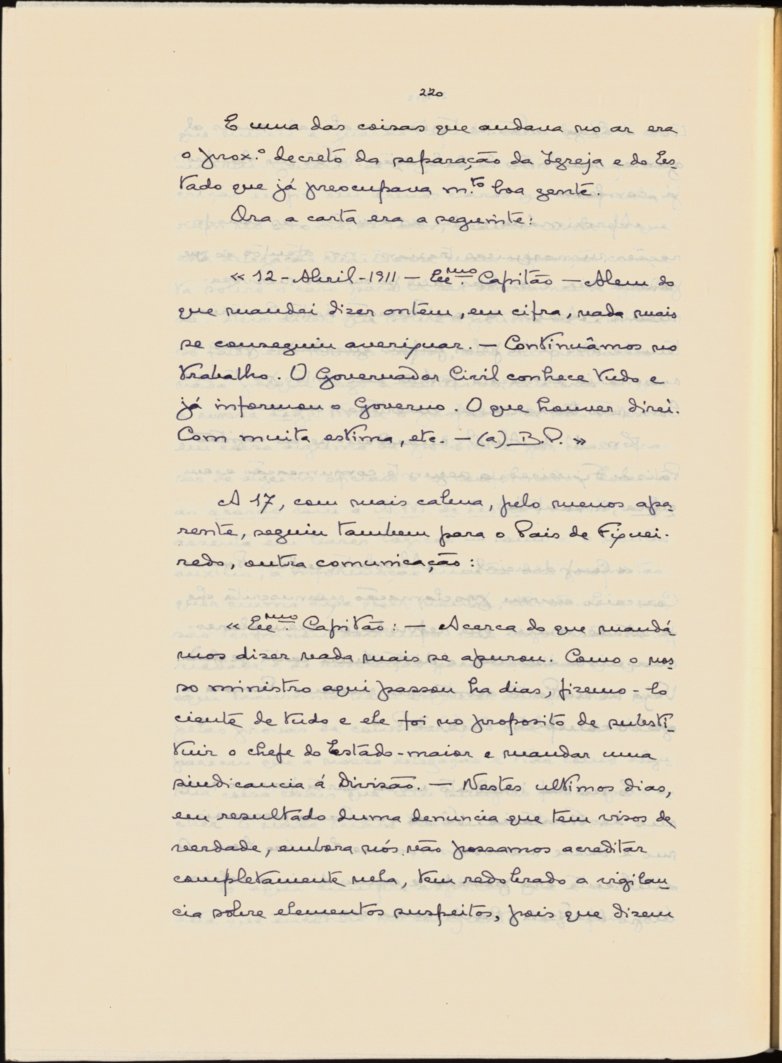 220
E uma das coisas que andava no ar era
o prox.º decreto da separação da Igreja e do Es-
tado que já preocupava m.to boa gente.
Ora a carta era a seguinte:
« 12-Abril-1911 — Exmo. Capitão — Alem do
que mandei dizer ontem, em cifra, nada mais
se conseguiu averiguar. — Continuâmos no
trabalho. O Governador Civil conhece tudo e
já informou o Governo. O que houver direi.
Com muita estima, etc. — (a) B.P. »
A 17, com mais calma, pelo menos apa-
rente, seguiu tambem para o Pais de Figuei-
redo, outra comunicação:
« Exmo. Capitão: — Acerca do que mandá
mos dizer nada mais se apurou. Como o nos-
so ministro aqui passou ha dias, fizemo-lo
ciente de tudo e ele foi no proposito de substi-
tuir o chefe do Estado-maior e mandar uma
sindicancia á Divisão. — Nestes ultimos dias,
em resultado duma denuncia que tem visos de
verdade, embora nós não possamos acreditar
completamente nela, tem redobrado a vigilan-
cia sobre elementos suspeitos, pois que dizem